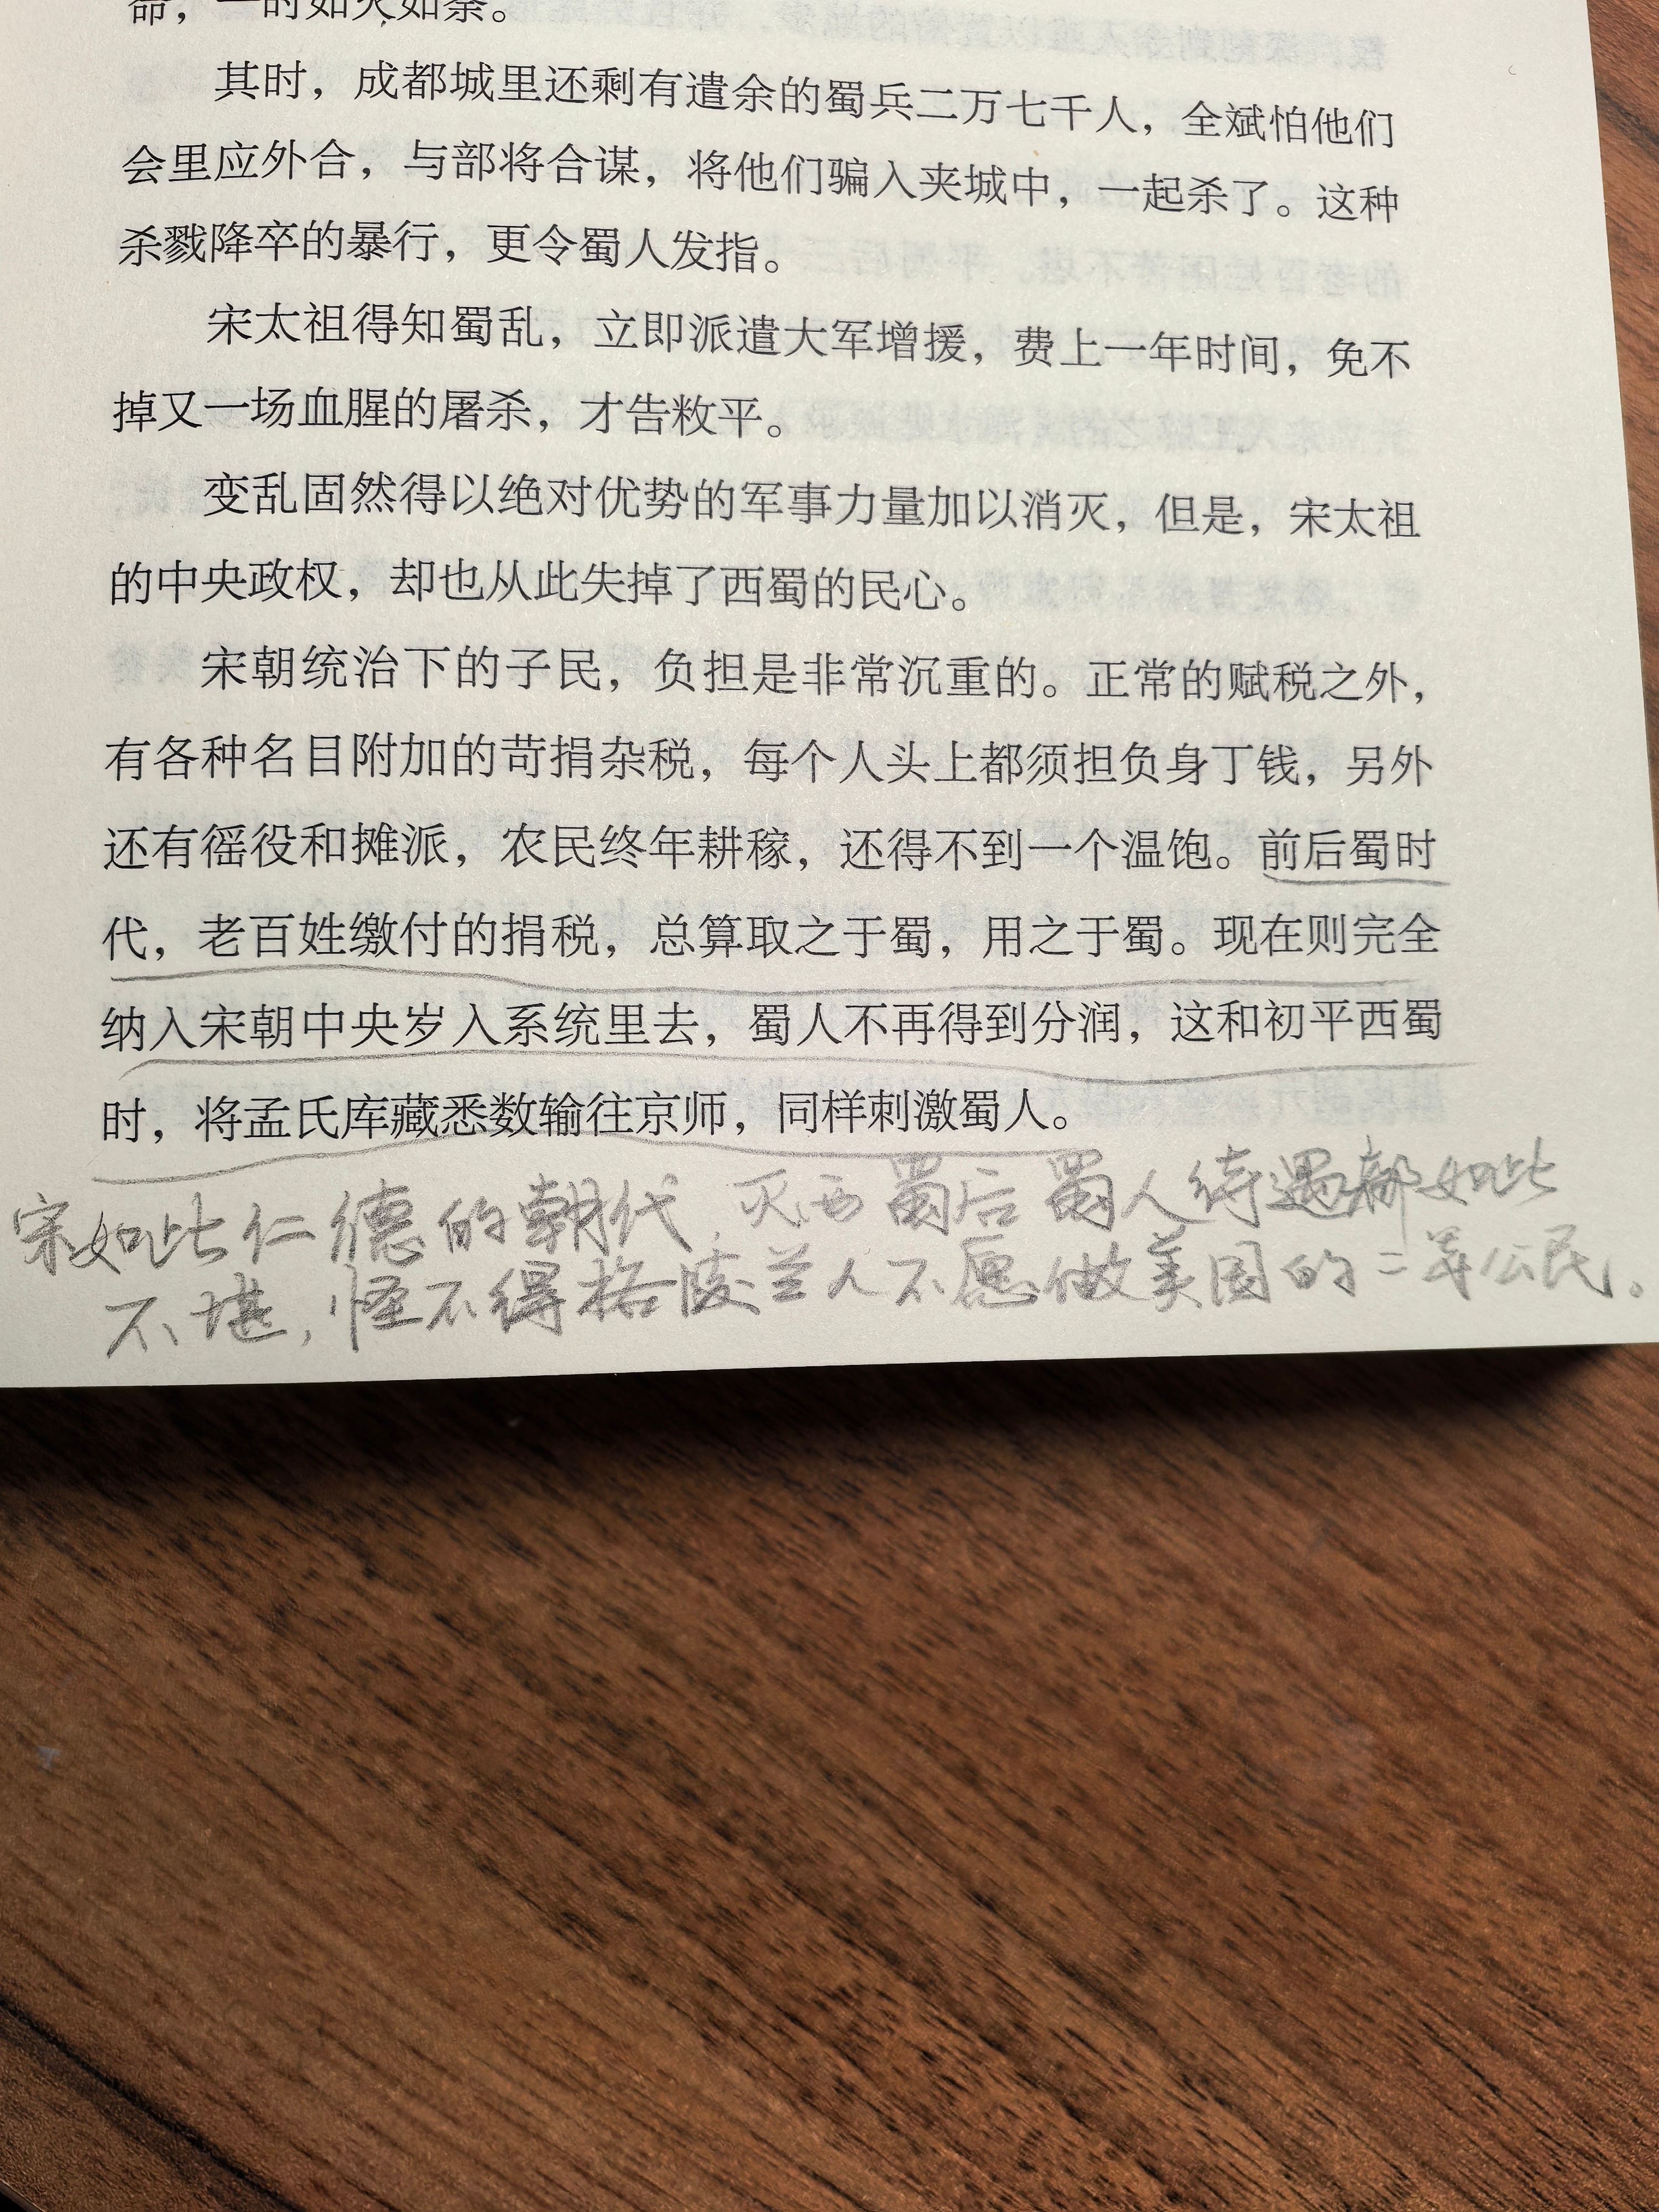 命，一时如火如荼。
其时，成都城里还剩有遣余的蜀兵二万七千人，全斌怕他们
会里应外合，与部将合谋，将他们骗入夹城中，一起杀了。这种
杀戮降卒的暴行，更令蜀人发指。
宋太祖得知蜀乱，立即派遣大军增援，费上一年时间，免不
掉又一场血腥的屠杀，才告敉平。
变乱固然得以绝对优势的军事力量加以消灭，但是，宋太祖
的中央政权，却也从此失掉了西蜀的民心。
宋朝统治下的子民，负担是非常沉重的。正常的赋税之外，
有各种名目附加的苛捐杂税，每个人头上都须担负身丁钱，另外
还有徭役和摊派，农民终年耕稼，还得不到一个温饱。前后蜀时
代，老百姓缴付的捐税，总算取之于蜀，用之于蜀。现在则完全
纳入宋朝中央岁入系统里去，蜀人不再得到分润，这和初平西蜀
时，将孟氏库藏悉数输往京师，同样刺激蜀人。
宋如此仁德的朝代，灭西蜀后蜀人待遇都如此
不堪，怪不得格陵兰人不愿做美国的二等公民。